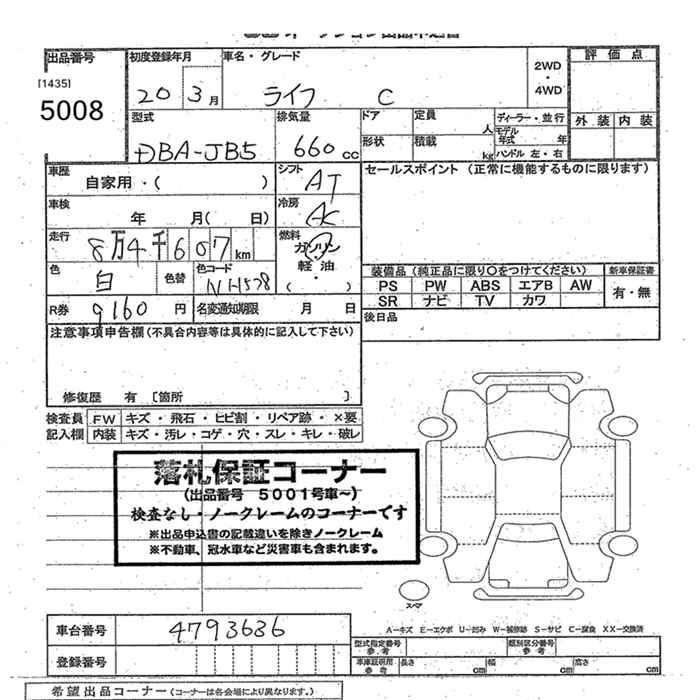 出品番号
[1435]
5008
初度登録年月
20 3月
車名・グレード
ライフ C
2WD
・
4WD
評価点
外装 内装
型式
DBA-JB5
排気量
660 cc
ドア
定員
人
ディーラー・並行
形状
積載
kg
モデル
年式 年
ハンドル 左・右
車歴
自家用・( )
シフト
AT
セールスポイント(正常に機能するものに限ります)
車検
年 月( 日)
冷房
AC
走行
8万4千607km
燃料
ガソリン
軽油・
( )
色
白
色替
色コード
NH578
装備品(純正品に限り○をつけてください)
新車保証書
PS PW ABS エアB AW
SR ナビ TV カワ
有・無
R券
9160円
名変通知期限 月 日
後日品
注意事項申告欄(不具合内容等は具体的に記入して下さい)
修復歴 有 [箇所 ]
検査員 FW キズ・飛石・ヒビ割・リペア跡・×要
記入欄 内装 キズ・汚レ・コゲ・穴・スレ・キレ・破レ
落札保証コーナー
(出品番号 5001号車~)
検査なし・ノークレームのコーナーです
※出品申込書の記載違いを除きノークレーム
※不動車、冠水車など災害車も含まれます。
スペア
A-キズ E-エクボ U-凹み W-補修跡 S-サビ C-腐食 XX-交換済
車台番号
4793636
登録番号
型式指定番号
参考
類別区分番号
参考
車庫証明用
参考
長さ cm
幅 cm
高さ cm
希望出品コーナー(コーナーは各会場により異なります。)